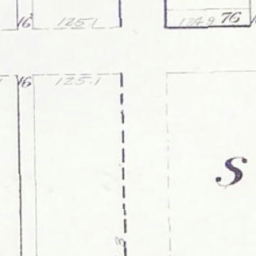 16 125.1 124.9 76
16 125.1
S